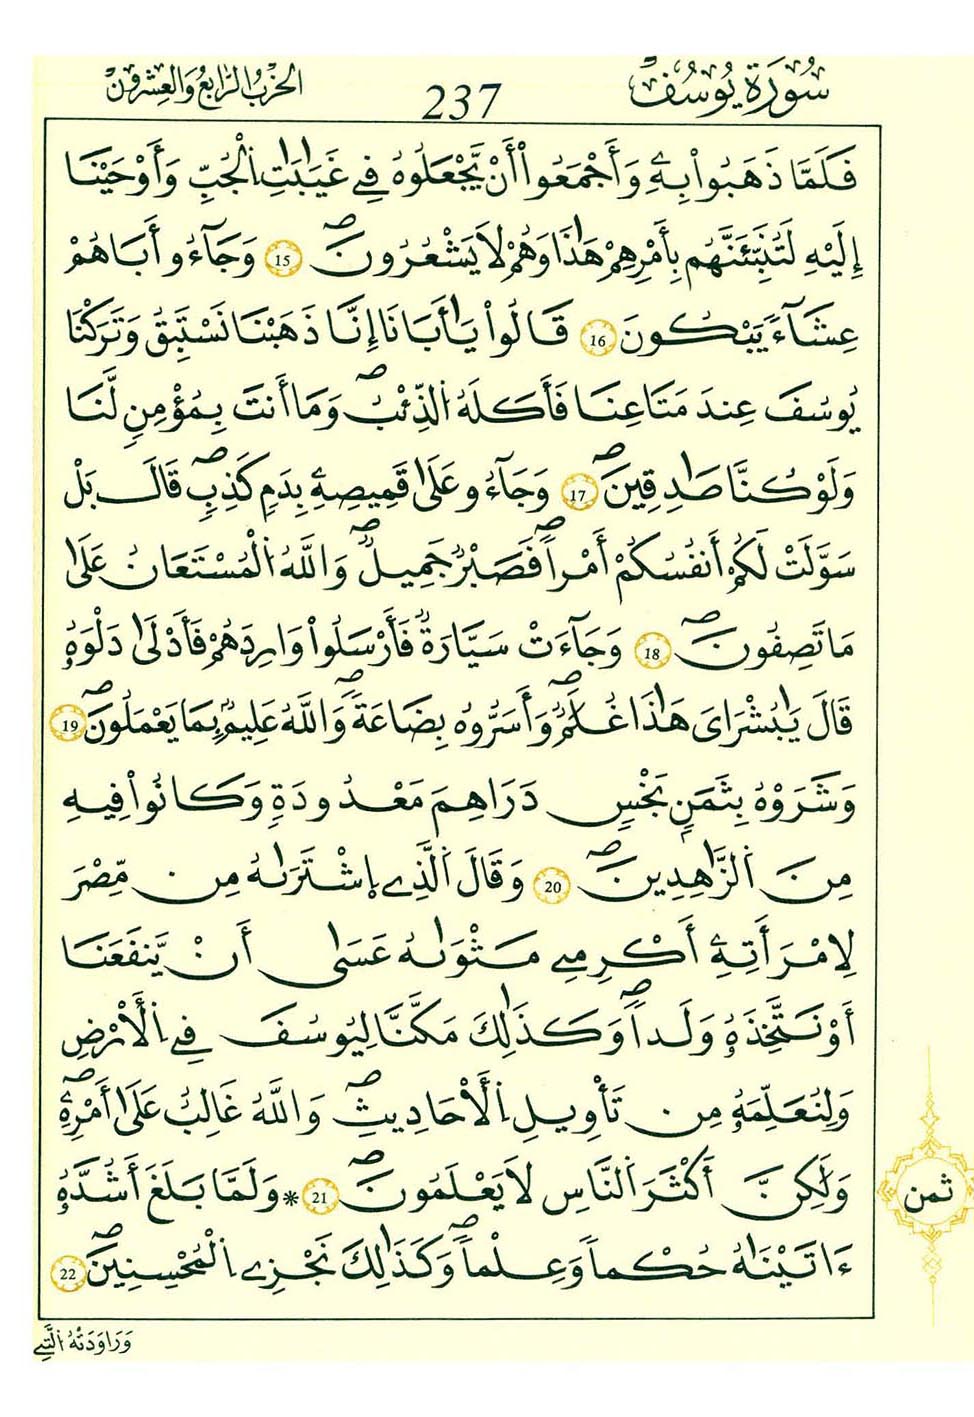 سُورَةُ يُوسُفَ
237
الحِزْبُ الرَّابِعُ وَالعِشْرُونَ
فَلَمَّا ذَهَبُواْ بِهِۦ وَأَجْمَعُواْ أَنْ يَّجْعَلُوهُ فِے غَيَٰبَٰتِ اِ۬لْجُبِّ وَأَوْحَيْنَا
إِلَيْهِ لَتُنَبِّئَنَّهُم بِأَمْرِهِمْ هَٰذَا وَهُمْ لَا يَشْعُرُونَۖ 15 وَجَآءُو أَبَاهُمْ
عِشَآءٗ يَبْكُونَ 16 قَالُواْ يَٰأَبَانَا إِنَّا ذَهَبْنَا نَسْتَبِقُ وَتَرَكْنَا
يُوسُفَ عِندَ مَتَاعِنَا فَأَكَلَهُ اُ۬لذِّئْبُۖ وَمَا أَنتَ بِمُؤْمِنٖ لَّنَا
وَلَوْ كُنَّا صَٰدِقِينَۖ 17 وَجَآءُو عَلَىٰ قَمِيصِهِۦ بِدَمٖ كَذِبٖۖ قَالَ بَلْ
سَوَّلَتْ لَكُمُۥ أَنفُسُكُمُۥ أَمْراٗۖ فَصَبْرٞ جَمِيلٞۖ وَاللَّهُ اُ۬لْمُسْتَعَانُ عَلَىٰ
مَا تَصِفُونَۖ 18 وَجَآءَتْ سَيَّارَةٞ فَأَرْسَلُواْ وَارِدَهُمْ فَأَدْلَىٰ دَلْوَهُۥ
قَالَ يَٰبُشْرَايَ هَٰذَا غُلَٰمٞۖ وَأَسَرُّوهُ بِضَاعَةٗۖ وَاللَّهُ عَلِيمُۢ بِمَا يَعْمَلُونَۖ 19
وَشَرَوْهُ بِثَمَنِۢ بَخْسٖ دَرَاهِمَ مَعْدُودَةٖ وَكَانُواْ فِيهِ
مِنَ اَ۬لزَّٰهِدِينَۖ 20 وَقَالَ اَ۬لَّذِے اِ۪شْتَرَىٰهُ مِن مِّصْرَ
لِامْرَأَتِهِۦ أَكْرِمِے مَثْوَىٰهُ عَسَىٰ أَنْ يَّنفَعَنَا
أَوْ نَتَّخِذَهُۥ وَلَداٗۖ وَكَذَٰلِكَ مَكَّنَّا لِيُوسُفَ فِے اِ۬لْأَرْضِ
وَلِنُعَلِّمَهُۥ مِن تَأْوِيلِ اِ۬لْأَحَادِيثِۖ وَاللَّهُ غَالِبٌ عَلَىٰ أَمْرِهِۦۖ
وَلَٰكِنَّ أَكْثَرَ اَ۬لنَّاسِ لَا يَعْلَمُونَۖ 21 * وَلَمَّا بَلَغَ أَشُدَّهُۥ
ءَاتَيْنَٰهُ حُكْماٗ وَعِلْماٗۖ وَكَذَٰلِكَ نَجْزِے اِ۬لْمُحْسِنِينَۖ 22
ثمن
وَرَاوَدَتْهُ اُ۬لَّتِے